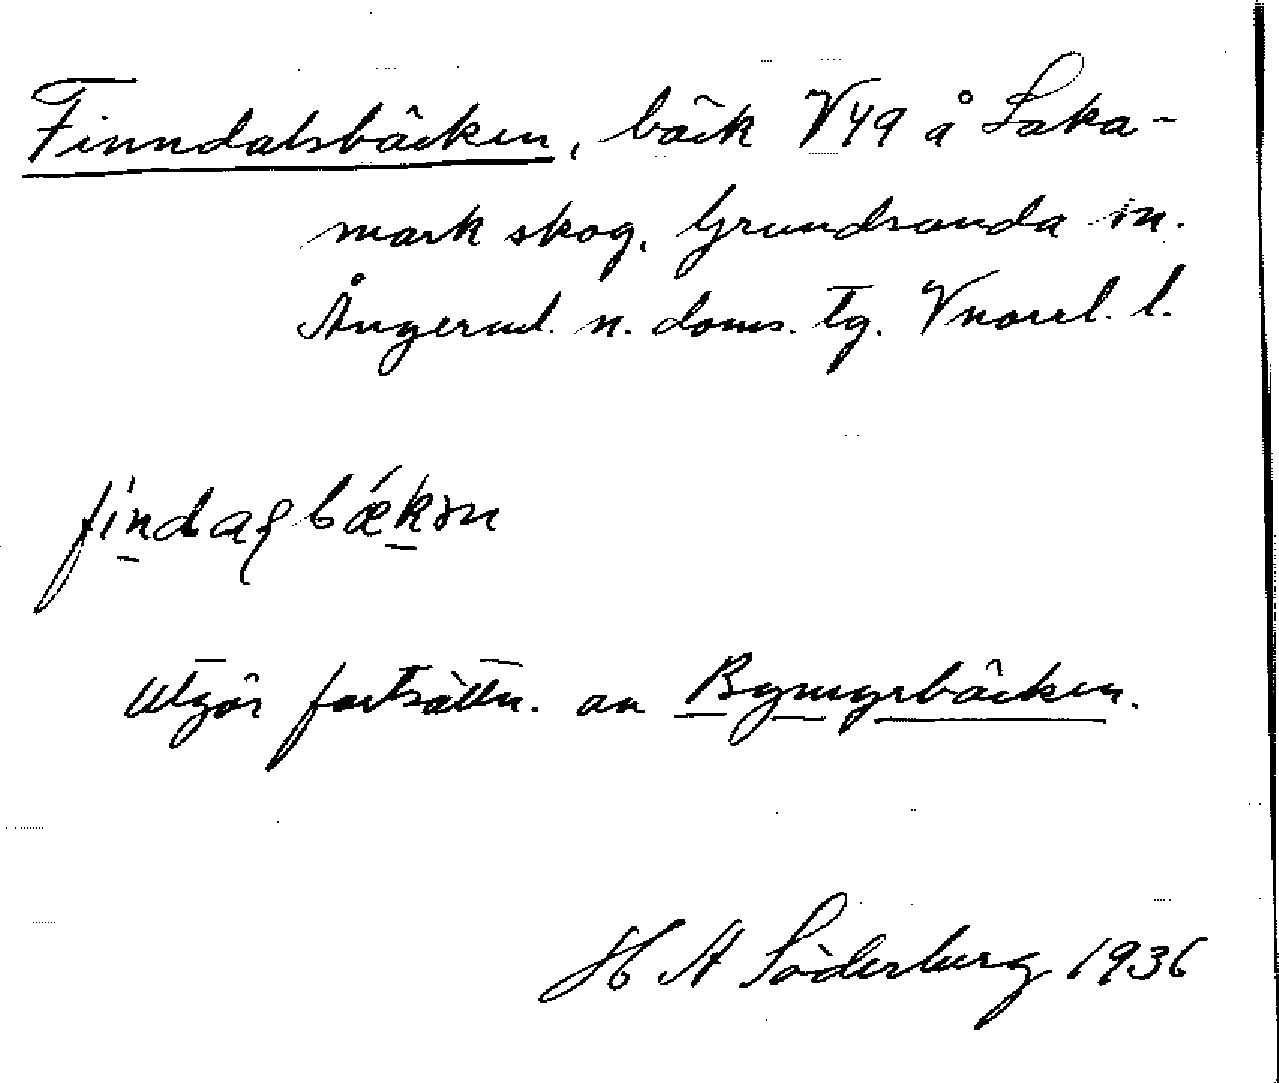 Finndalsbäcken, bäck V49 å Laka-
mark skog, Grundsunda sn.
Ångerml. n. doms. tg. Vnorrl. l.
findaʃbækən
Utgör fortsättn. av Bymyrbäcken.
H A Söderberg 1936